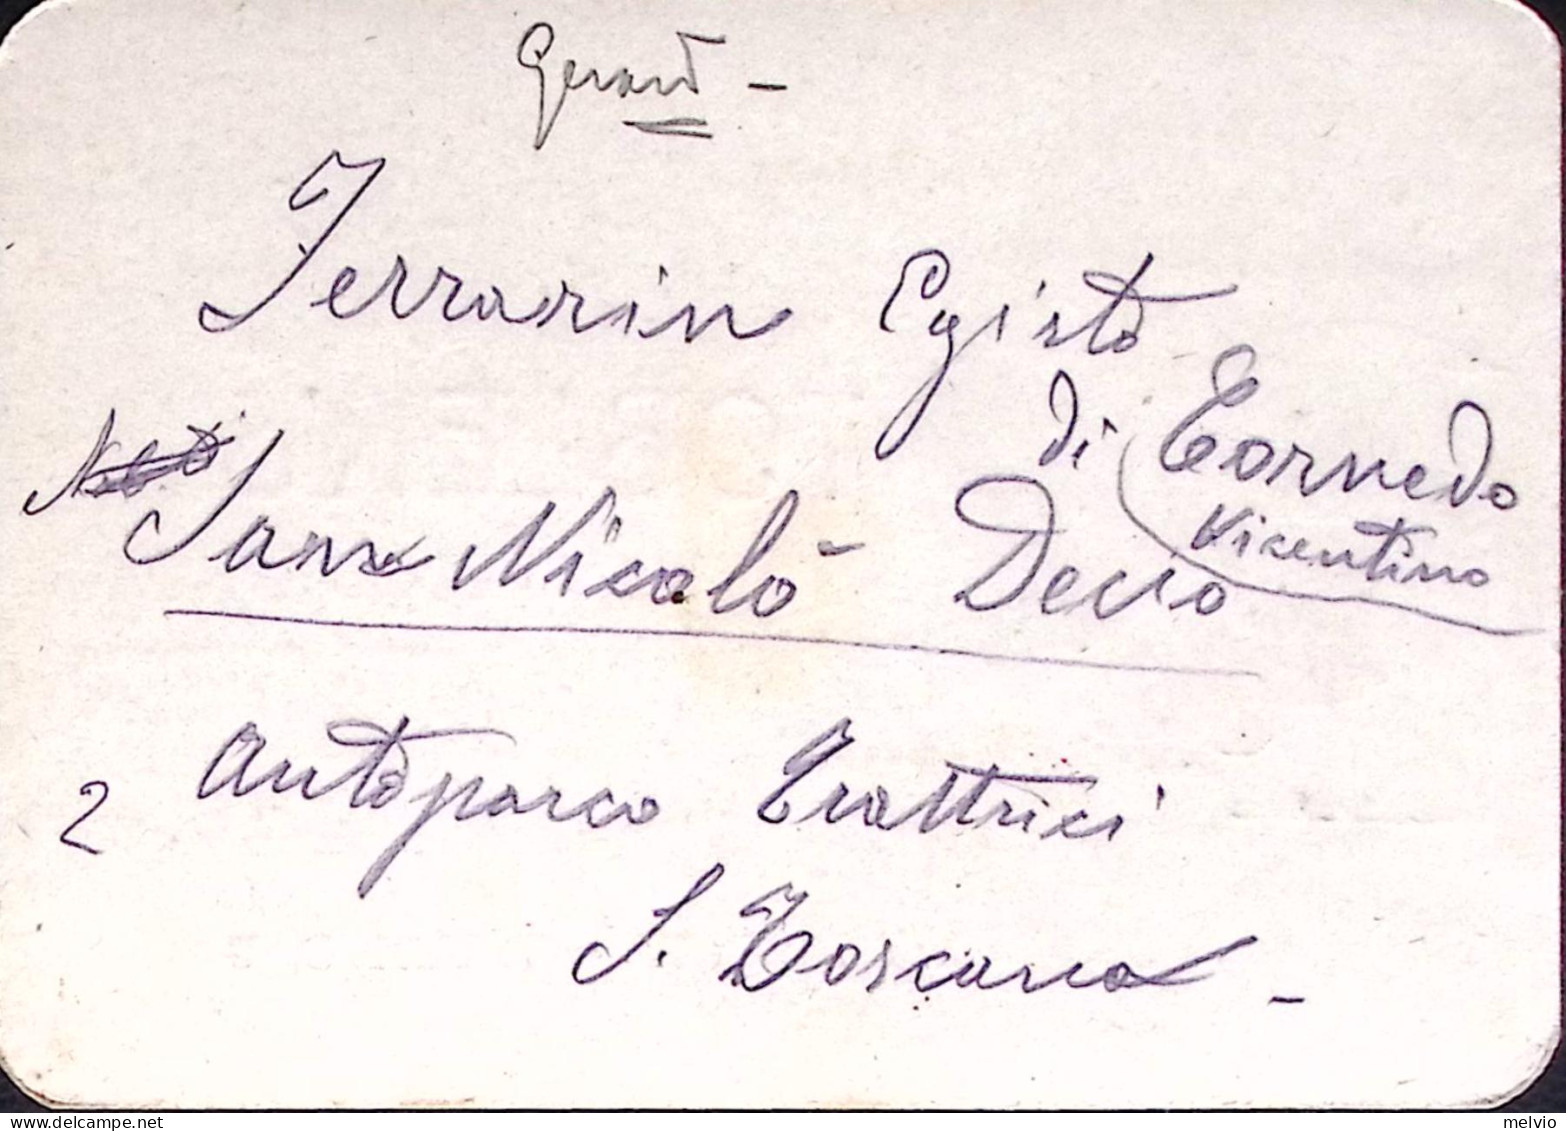 Gerard -
Ferrarin Egisto
di Cornedo
Vicentino
San Nicolò - Decio
2 autoparco Trattrici
S. Toscana -
melvio